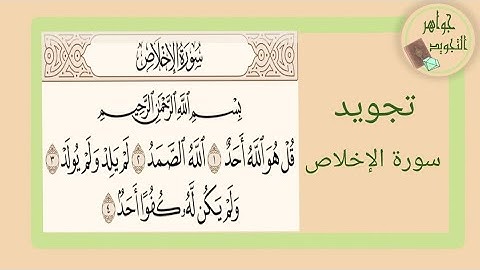 جواهر
التجويد
سورة الإخلاص
بِسْمِ ٱللَّهِ ٱلرَّحْمَٰنِ ٱلرَّحِيمِ
قُلْ هُوَ ٱللَّهُ أَحَدٌ ١ ٱللَّهُ ٱلصَّمَدُ ٢ لَمْ يَلِدْ وَلَمْ يُولَدْ ٣
وَلَمْ يَكُن لَّهُۥ كُفُوًا أَحَدٌۢ ٤
تجويد
سورة الإخلاص